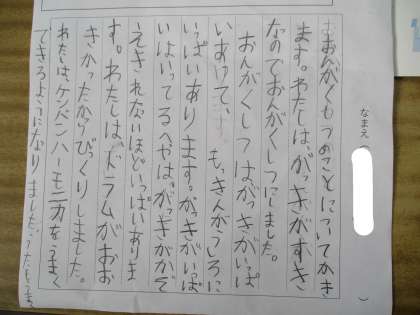 なまえ（　）
おんがくしつのことについてかき
ます。わたしは、がっきがすき
なのでおんがくしつにしました。
おんがくしつはがっきがいっぱ
いあって、す。もっきんがうしろに
いっぱいあります。がっきがいっぱ
いはいってるへやは、がっきがかぞ
えきれないほどいっぱいありま
す。わたしは、ドラムがおお
きかったからびっくりしました。
わたしは、ケンバンハーモニカをうまく
できるようになりました。